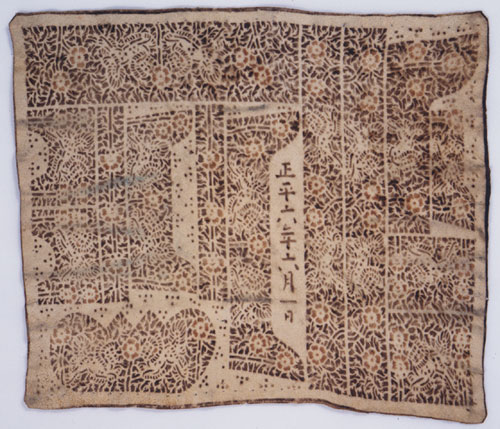 正平六年六月一日